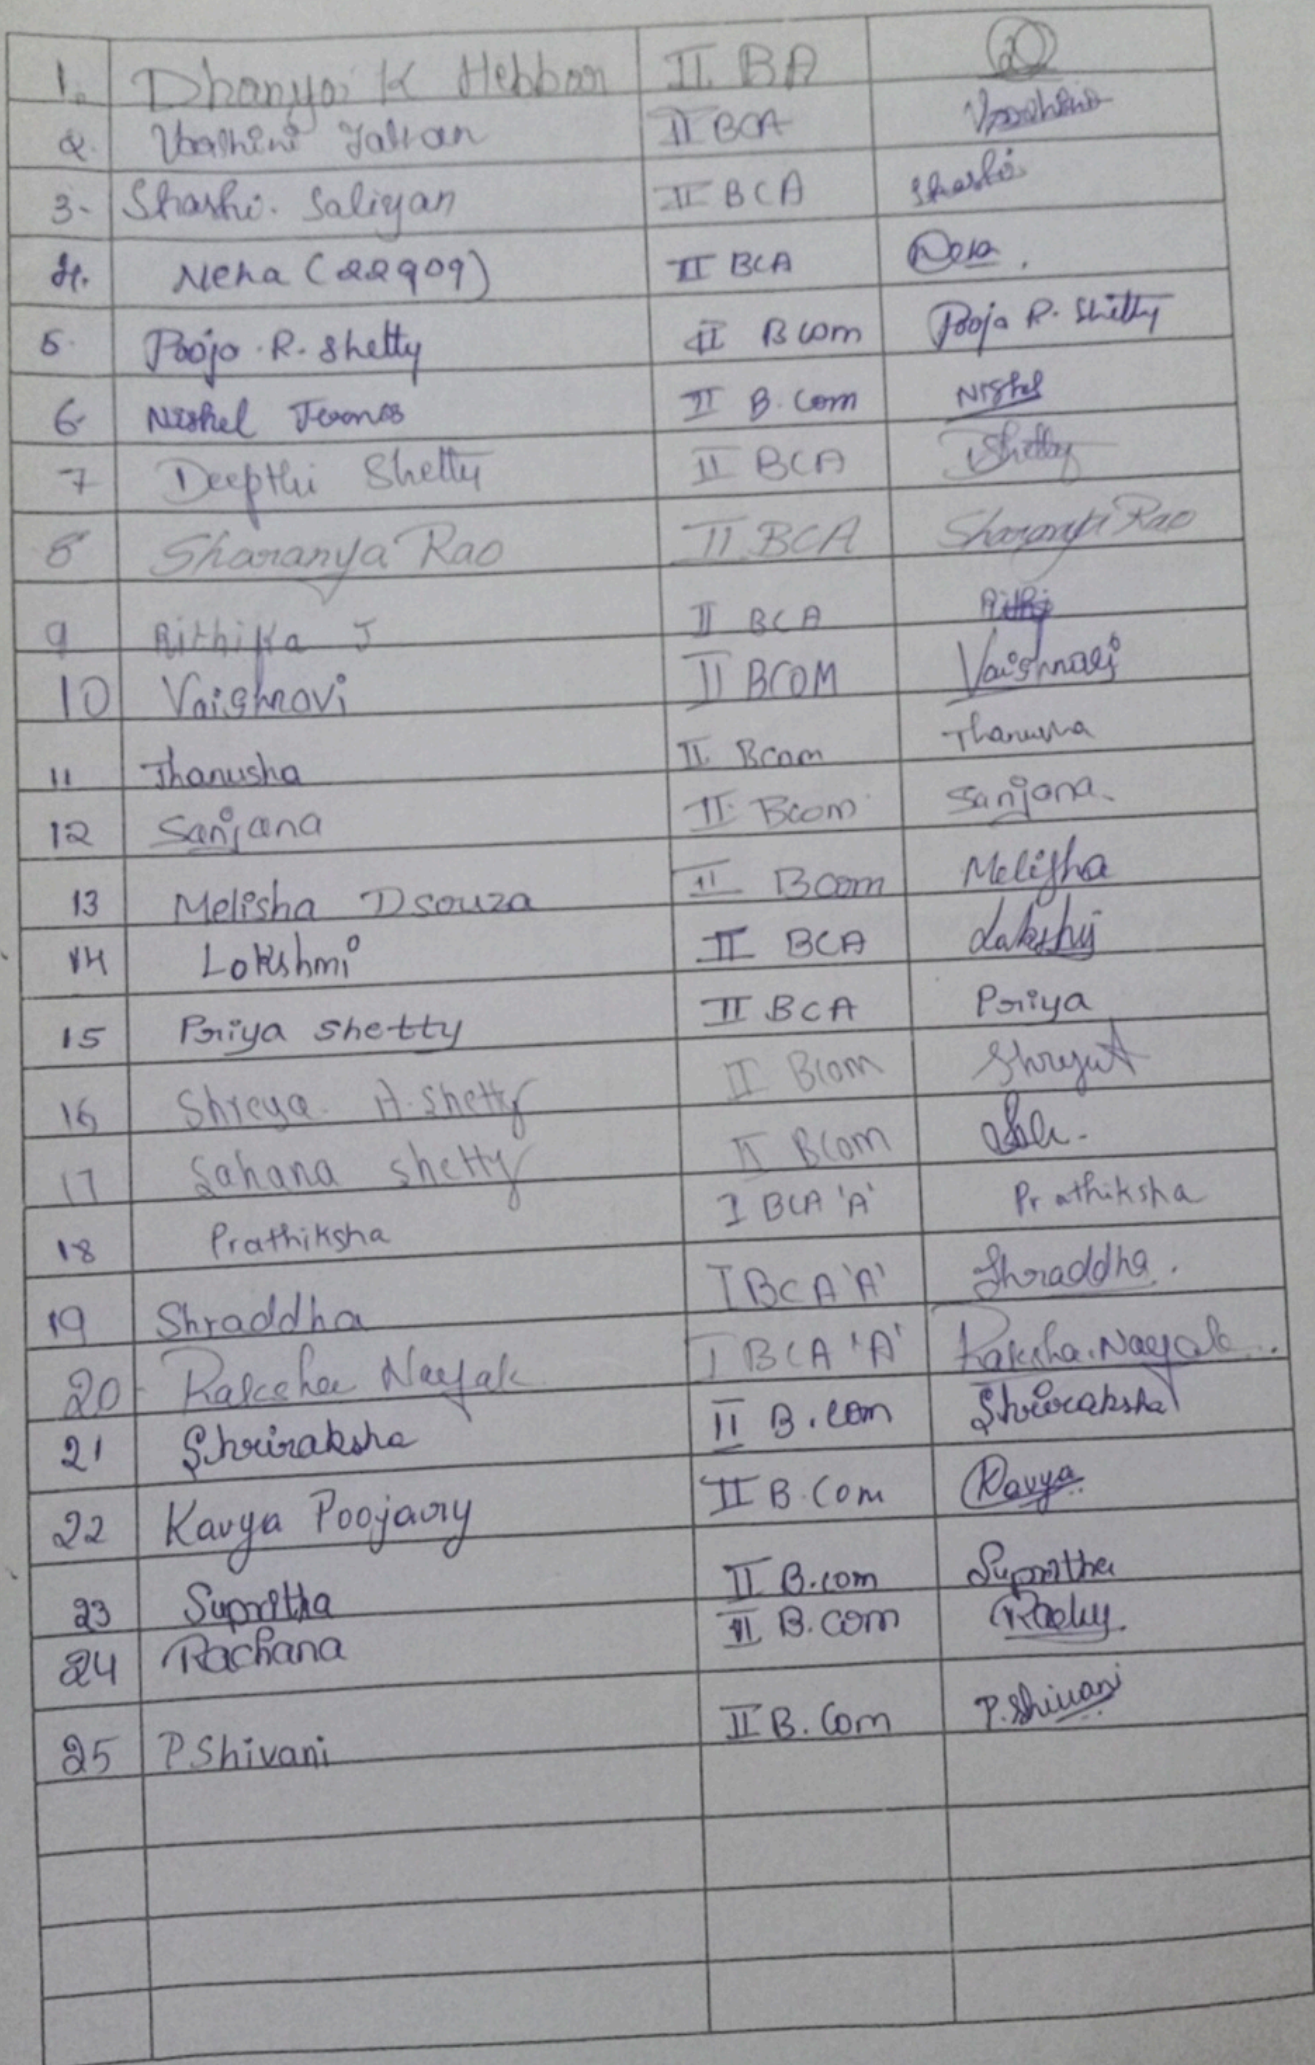 1. Dhanya K Hebbar II BA
2. Varshini II BCA Varshini
3. Shashi. Saliyan II BCA Shashi
4. Neha (22909) II BCA Neha
5. Pooja. R. Shetty II B com Pooja R. Shetty
6 Nishel II B. com Nishel
7 Deepthi Shetty II BCA DShetty
8 Sharanya Rao II BCA Sharanya Rao
9 Rithika J II BCA
10 Vaishnavi II BCOM Vaishnavi
11 Thanusha II Bcom Thanusha
12 Sanjana II Bcom Sanjana
13 Melisha Dsouza II Bcom Melisha
14 Lakshmi II BCA
15 Priya shetty II BCA Priya
16 Shreya. A. Shetty II Bcom
17 Sahana shetty II Bcom
18 Prathiksha I BCA 'A' Prathiksha
19 Shraddha I BCA 'A' Shraddha.
20 Raksha Nayak I BCA 'A' Raksha. Nayak
21 Shriraksha II B. com Shriraksha
22 Kavya Poojary II B. Com Kavya
23 Supritha II B.com Supritha
24 Rachana II B. com
25 P Shivani II B. Com P. Shivani